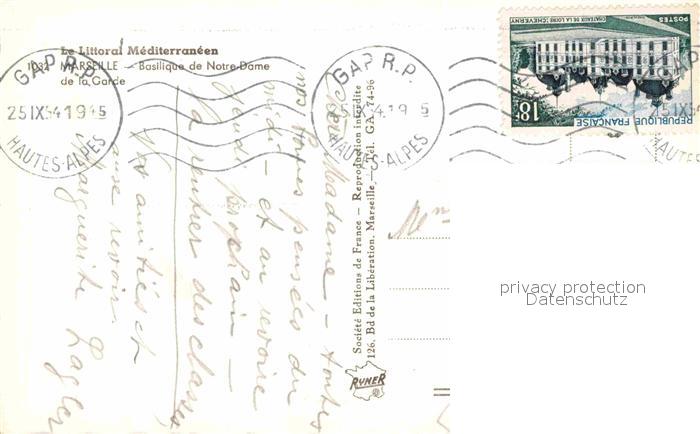 Le Littoral Méditerranéen
1032 MARSEILLE — Basilique de Notre-Dame
de la Garde
GAP R.P.
25 IX 54 19 45
HAUTES-ALPES
GAP R.P.
HAUTES-ALPES
25 IX
HAUTES
POSTES
CHATEAUX DE LA LOIRE : CHEVERNY
18F
REPUBLIQUE FRANÇAISE
Madame - toutes
bonnes pensées du
midi - et au revoir
jeudi prochain -
La rentrée des classes
Nos amitiés et
au revoir
Marguerite
Société Editions de France - Reproduction interdite
126, Bd de la Libération, Marseille - Tél. GA. 74-96
RYNER
Mme
privacy protection
Datenschutz